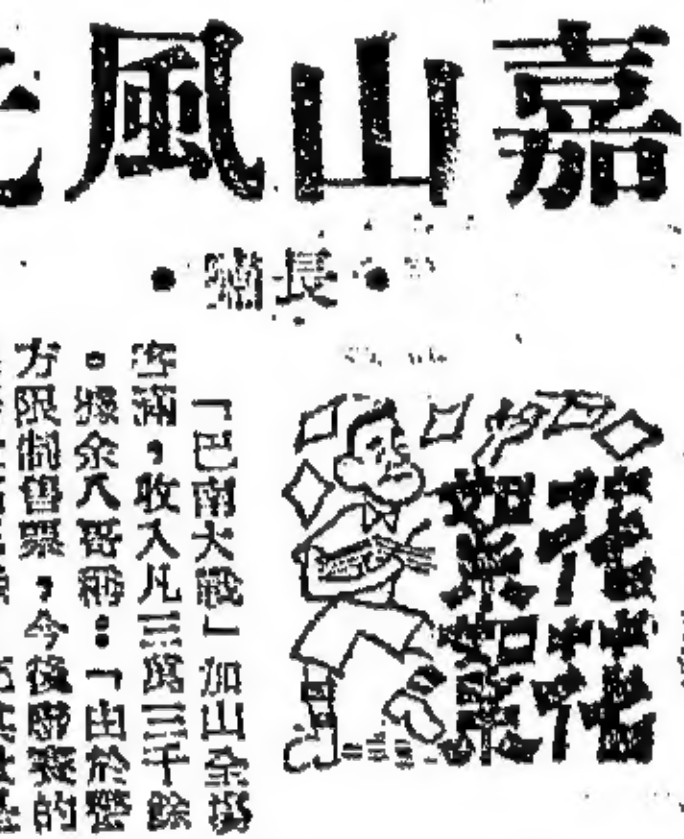 嘉山風
長
花絮
花絮
「巴南大戰」加山全場
客滿，收入凡三萬三千餘
。據余八哥稱：「由於警
方限制售票，今後聯賽的